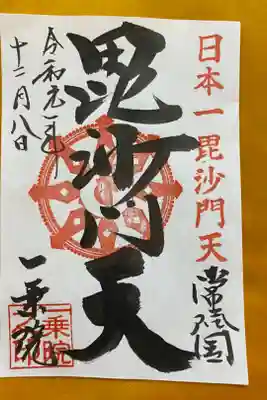 日本一毘沙門天
常陸国
毘沙門天
令和元年
十二月八日
一乗院
一乗院